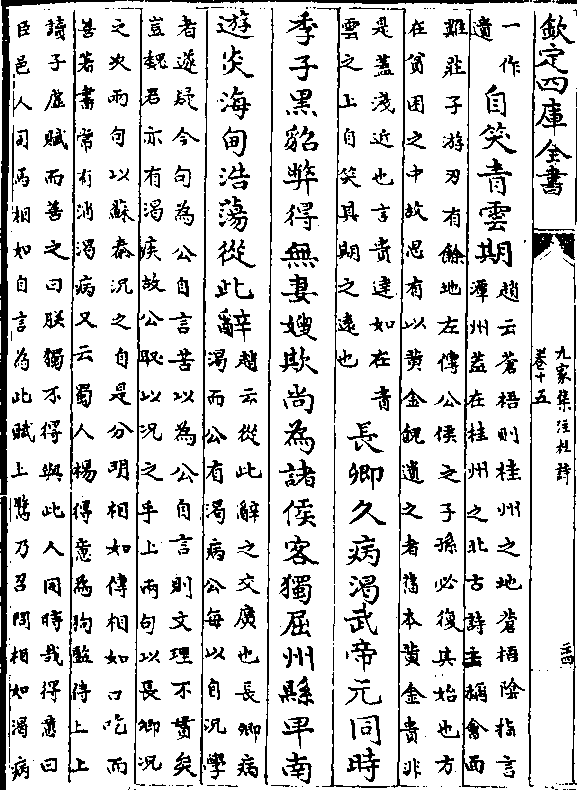 欽定四庫全書
九家集注杜詩
卷十五
三四
一作
遺
自笑青雲期
趙云蒼梧則桂州之地蒼梧陰指言
潭州蓋在桂州之北古詩主稱會面
難莊子游刃有餘地左傳公侯之子孫必復其始也方
在貧困之中故思有以黄金貺遺之者舊本黄金貴非
是蓋淺近也言貴達如在青
雲之上自笑其期之遠也
長卿久病渴武帝元同時
季子黒貂弊得無妻嫂欺尚為諸侯客獨屈州縣卑南
遊炎海甸浩蕩從此辭
趙云從此辭之交廣也長卿病
渴而公有渴病公每以自况學
者遂疑今句為公自言苦以為公自言則文理不貫矣
豈魏君亦有渴疾故公取以况之乎上兩句以長卿况
之次兩句以蘇秦况之自是分明相如傳相如口吃而
善著書常有消渴病又云蜀人楊得意為狗監侍上上
讀子虚賦而善之曰朕獨不得與此人同時哉得意曰
臣邑人司馬相如自言為此賦上驚乃召問相如渴病